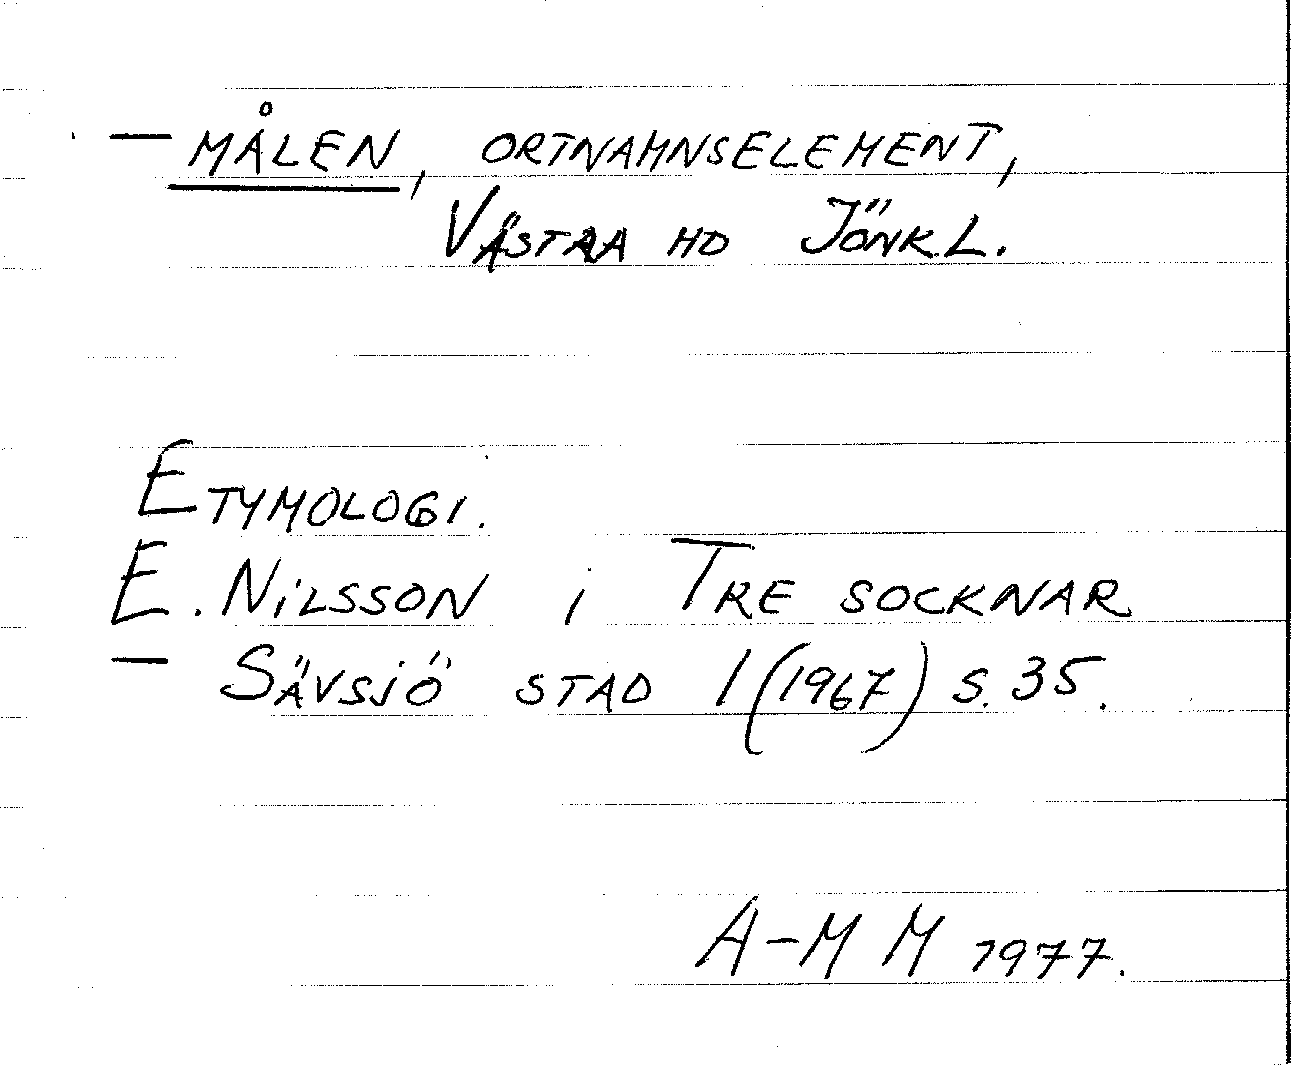 — MÅLEN, ORTNAMNSELEMENT,
VÄSTRA HD JÖNK.L.
ETYMOLOGI.
E. NILSSON i TRE SOCKNAR
— SÄVSJÖ STAD 1 (1967) S. 35.
A-M M 1977.